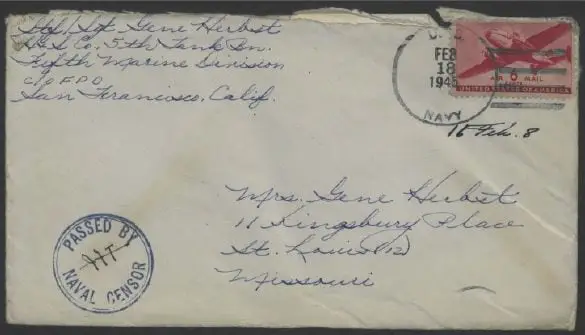 Stf/Sgt Gene Herbst
H&S Co. 5th Tank Bn.
Fifth Marine Division
c/o F.P.O
San Francisco, Calif.
FEB
18
1945
NAVY
AIR 6¢ MAIL
UNITED STATES OF AMERICA
16 Feb. 8
Mrs. Gene Herbst
11 Kingsbury Place
St. Louis (12)
Missouri
PASSED BY
NAVAL CENSOR